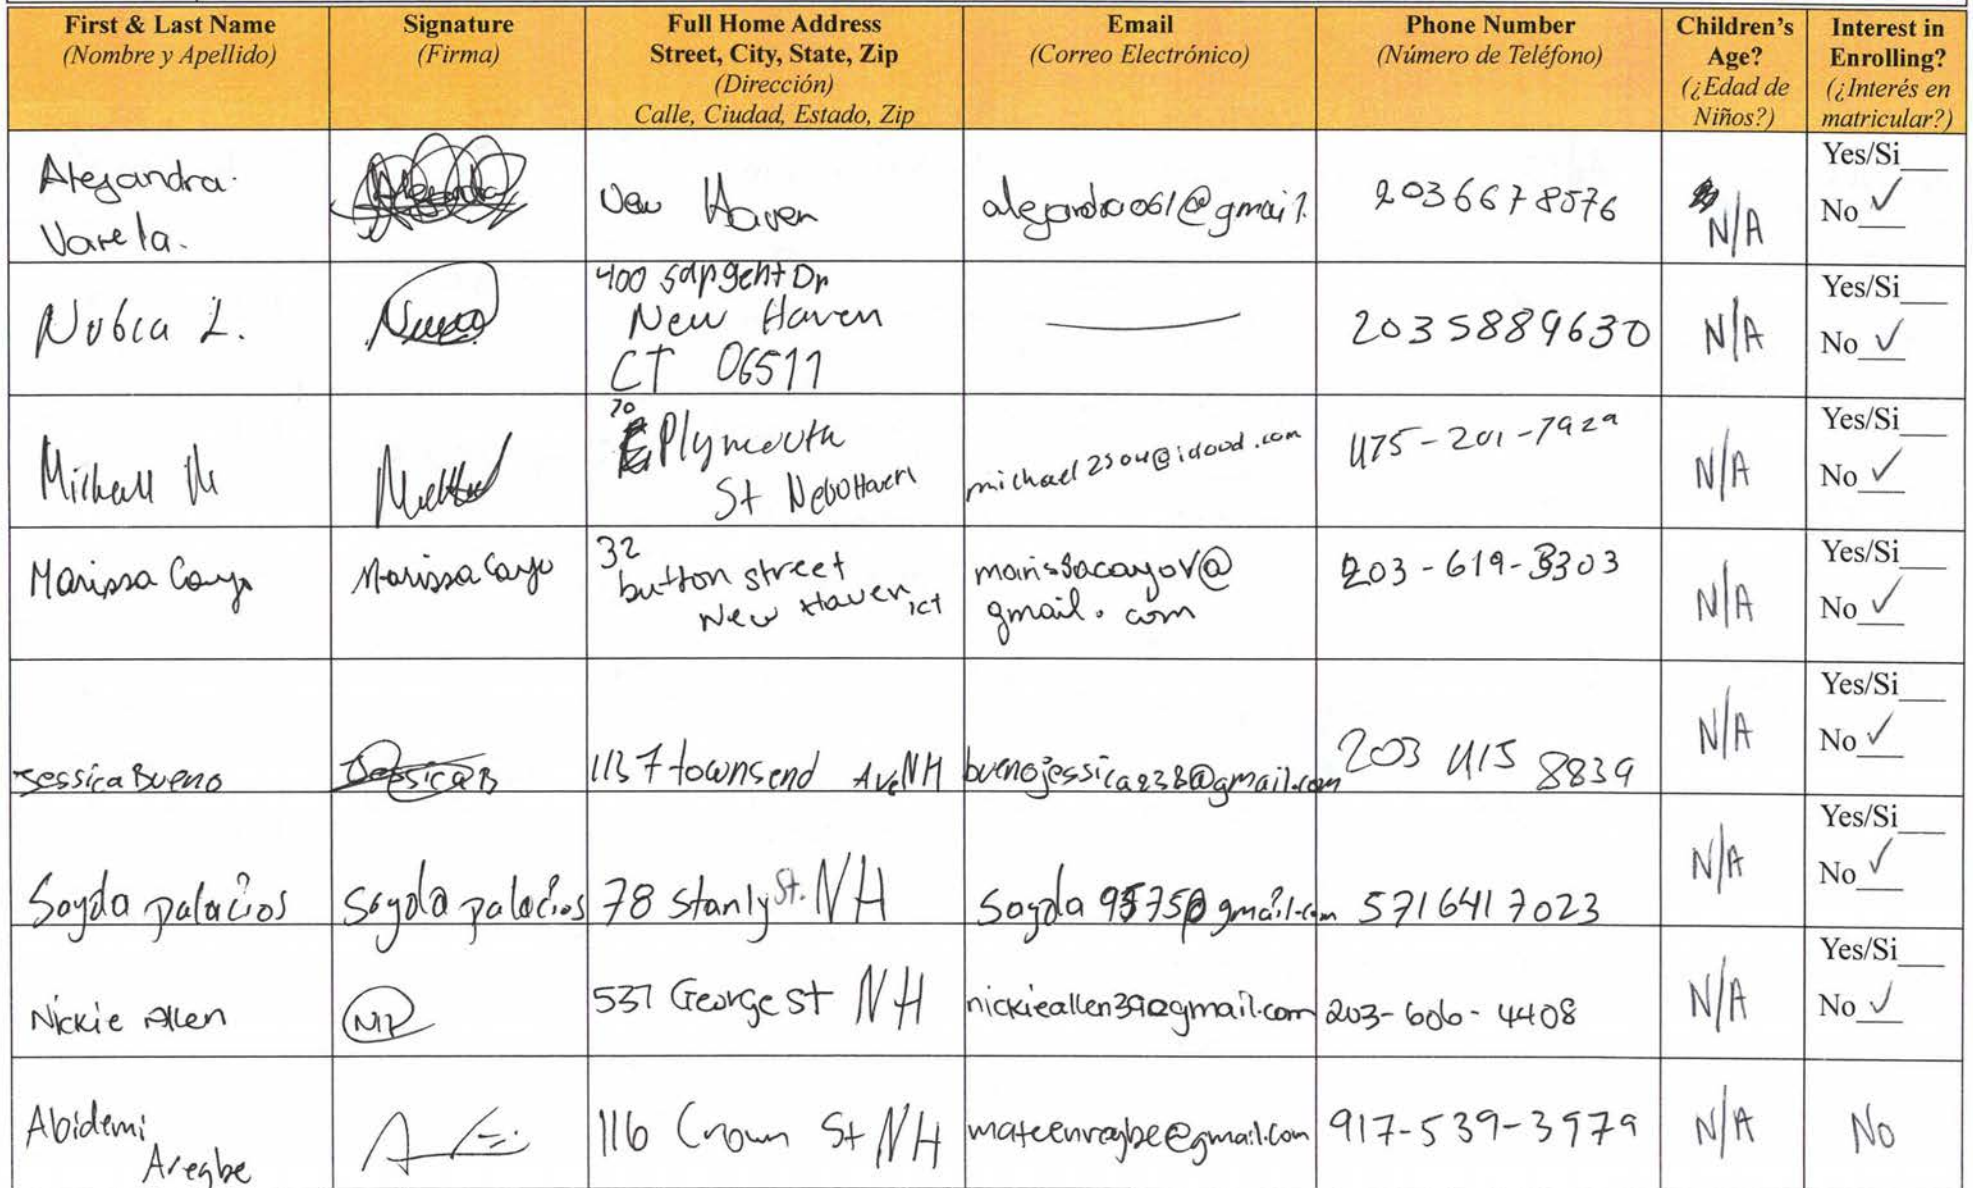 First & Last Name
(Nombre y Apellido)
Signature
(Firma)
Full Home Address
Street, City, State, Zip
(Dirección)
Calle, Ciudad, Estado, Zip
Email
(Correo Electrónico)
Phone Number
(Número de Teléfono)
Children's
Age?
(¿Edad de
Niños?)
Interest in
Enrolling?
(¿Interés en
matricular?)
Alejandra
Varela.
New Haven
2036678576
N/A
Yes/Si___
No ✓
Nubia L.
400 Sargent Dr
New Haven
CT 06511
2035889630
N/A
Yes/Si___
No ✓
70
Plymouth
St New Haven
michael2504@icloud.com
475-201-7929
N/A
Yes/Si___
No ✓
Marissa Cayo
Marissa Cayo
32
button street
New Haven, ct
marissacayov@
gmail.com
203-619-3303
N/A
Yes/Si___
No ✓
Jessica Bueno
Jessica B
1137 townsend Ave NH
203 415 8839
N/A
Yes/Si___
No ✓
Soyda palacios
Soyda palacios
78 Stanly St. NH
5716417023
N/A
Yes/Si___
No ✓
Nickie Allen
537 George St NH
nickieallen39@gmail.com
203-606-4408
N/A
Yes/Si___
No ✓
Abidemi
Aregbe
116 Crown St NH
917-539-3979
N/A
No